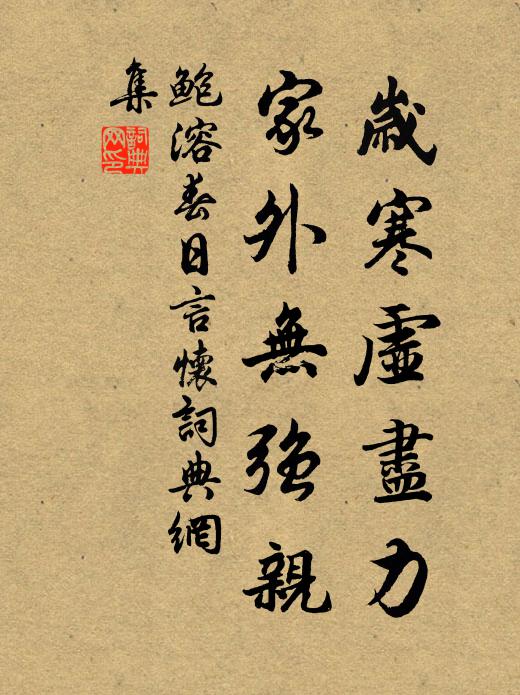 歲寒虛盡力
家外無強親
鮑溶春日言懷詞典網
集
詞典網印